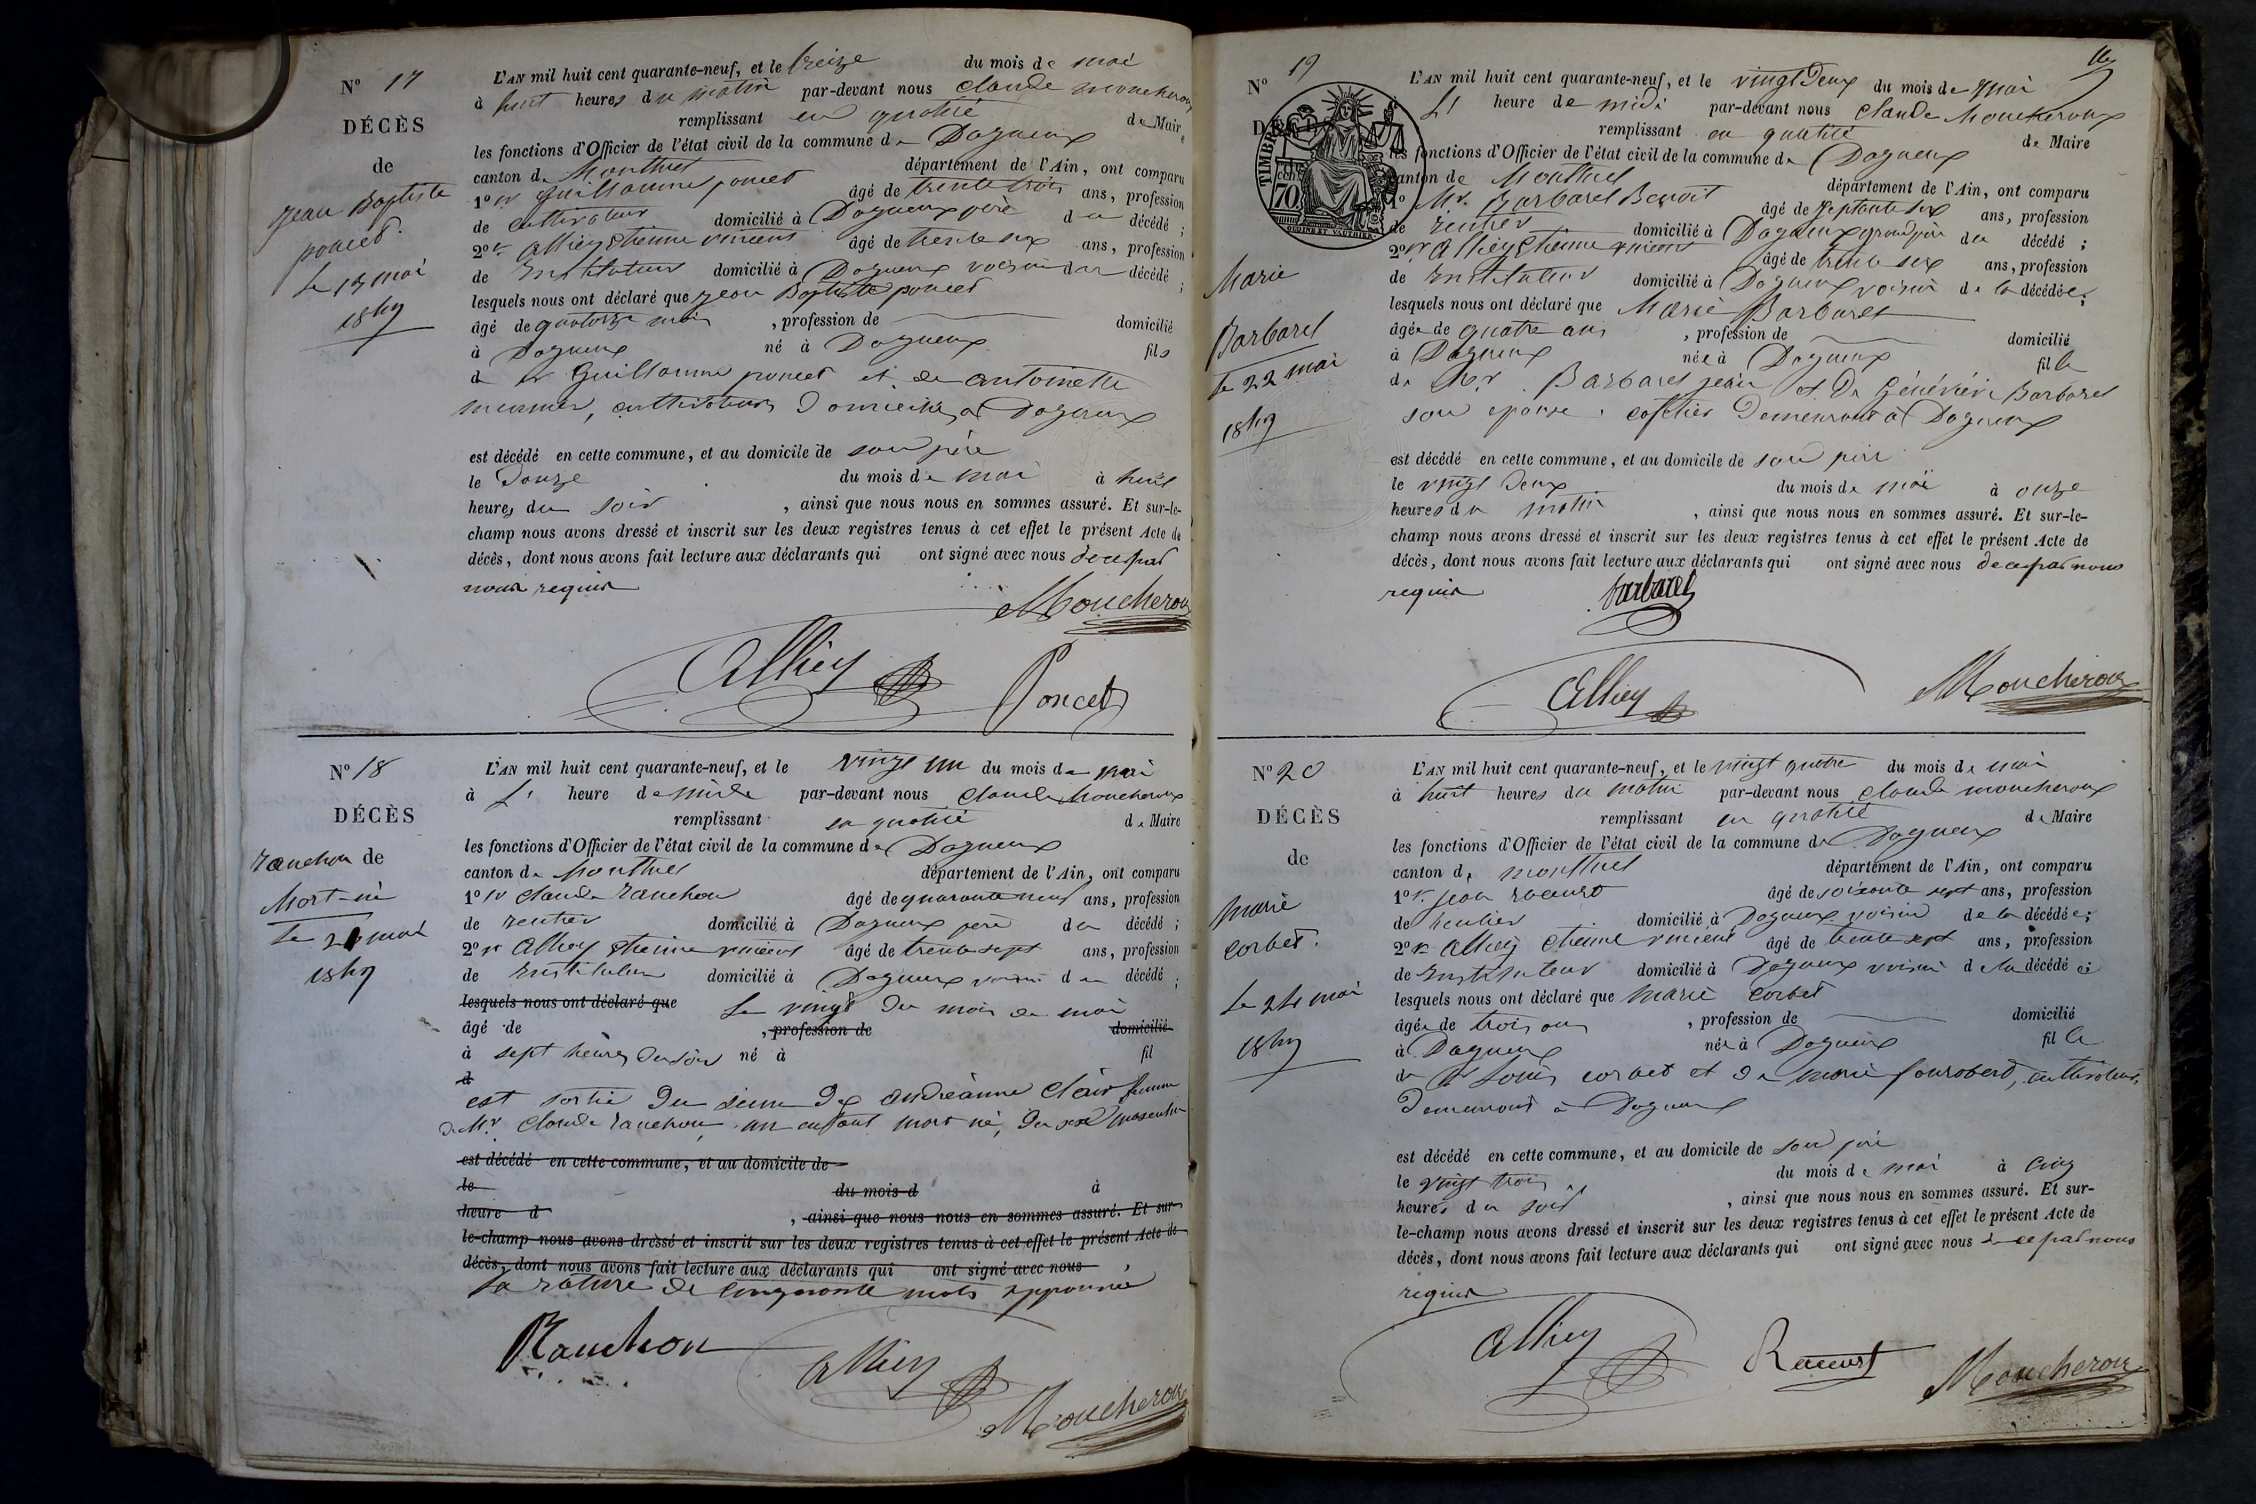 N° 17
DÉCÈS
de
Jean Baptiste
poncet.
Le 13 mai
1849
L'AN mil huit cent quarante-neuf, et le treize du mois de mai
à huit heures du matin par-devant nous Claude Moucheroux
remplissant en qualité de Maire
les fonctions d'Officier de l'état civil de la commune de Dagneux
canton de Montluel département de l'Ain, ont comparu
1° Sr Guillaume poncet âgé de trente trois ans, profession
de cultivateur domicilié à Dagneux père du décédé ;
2° Sr Alliey Etienne vincent âgé de trente six ans, profession
de Instituteur domicilié à Dagneux voisin du décédé ;
lesquels nous ont déclaré que Jean Baptiste poncet
âgé de quatorze mois , profession de domicilié
à Dagneux né à Dagneux fils
de Sr Guillaume poncet et de antoinette
meunier, cultivateurs Domiciliés à Dagneux
est décédé en cette commune, et au domicile de son père
le Douze du mois de mai à huit
heures du soir , ainsi que nous nous en sommes assuré. Et sur-le-
champ nous avons dressé et inscrit sur les deux registres tenus à cet effet le présent Acte de
décès, dont nous avons fait lecture aux déclarants qui ont signé avec nous de ce par
nous requis
Moucheroux
Alliey
Poncet
N° 18
DÉCÈS
Ranchon de
Mort-né
Le 21 mai
1849
L'AN mil huit cent quarante-neuf, et le vingt un du mois de mai
à L' heure de midi par-devant nous Claude Moucheroux
remplissant en qualité de Maire
les fonctions d'Officier de l'état civil de la commune de Dagneux
canton de Montluel département de l'Ain, ont comparu
1° Sr Claude Ranchon âgé de quarante neuf ans, profession
de rentier domicilié à Dagneux père du décédé ;
2° Sr Alliey Etienne vincent âgé de trente sept ans, profession
de Instituteur domicilié à Dagneux voisin du décédé ;
lesquels nous ont déclaré que Le vingt du mois de mai
âgé de , profession de domicilié
à sept heures du soir né à fil
d
est sortie du sein de andréanne Clair femme
de Mr. Claude Ranchon, un enfant mort né, du sexe masculin
est décédé en cette commune, et au domicile de
le du mois d à
heure d , ainsi que nous nous en sommes assuré. Et sur-
le-champ nous avons dressé et inscrit sur les deux registres tenus à cet effet le présent Acte de
décès, dont nous avons fait lecture aux déclarants qui ont signé avec nous
La rature de Cinquante mots approuvée
Ranchon
Alliey
Moucheroux
N° 19
TIMBRE
70
Marie
Barbaret
Le 22 mai
1849
L'AN mil huit cent quarante-neuf, et le vingt Deux du mois de mai
L' heure de midi par-devant nous Claude Moucheroux
remplissant en qualité de Maire
les fonctions d'Officier de l'état civil de la commune de Dagneux
canton de Montluel département de l'Ain, ont comparu
1° Mr. Barbaret Benoit âgé de septante six ans, profession
de Rentier domicilié à Dagneux grand père du décédé ;
2° Sr Alliey Etienne vincent âgé de trente six ans, profession
de Instituteur domicilié à Dagneux voisin de la décédée ;
lesquels nous ont déclaré que Marie Barbaret
âgée de quatre ans , profession de domicilié
à Dagneux née à Dagneux fille
de Mr. Barbaret jean et de Généviève Barbaret
son épouse. cafetier Demeurant à Dagneux
est décédé en cette commune, et au domicile de son père
le vingt Deux du mois de mai à onze
heures du matin , ainsi que nous nous en sommes assuré. Et sur-le-
champ nous avons dressé et inscrit sur les deux registres tenus à cet effet le présent Acte de
décès, dont nous avons fait lecture aux déclarants qui ont signé avec nous de ce par nous
requis
Barbaret
Alliey
Moucheroux
N° 20
DÉCÈS
de
Marie
Corbet.
Le 24 mai
1849
L'AN mil huit cent quarante-neuf, et le vingt quatre du mois de mai
à huit heures du matin par-devant nous Claude Moucheroux
remplissant en qualité de Maire
les fonctions d'Officier de l'état civil de la commune de Dagneux
canton de Montluel département de l'Ain, ont comparu
1° Sr jean racurt âgé de soixante sept ans, profession
de rentier domicilié à Dagneux voisin de la décédée ;
2° Sr Alliey Etienne vincent âgé de trente sept ans, profession
de Instituteur domicilié à Dagneux voisin de la décédée
lesquels nous ont déclaré que Marie Corbet
âgée de trois ans , profession de domicilié
à Dagneux née à Dagneux fille
de Sr Louis Corbet et de Marie fourobert, cultivateurs
Demeurant à Dagneux
est décédé en cette commune, et au domicile de son père
le vingt trois du mois de mai à Cinq
heures du soir , ainsi que nous nous en sommes assuré. Et sur-
le-champ nous avons dressé et inscrit sur les deux registres tenus à cet effet le présent Acte de
décès, dont nous avons fait lecture aux déclarants qui ont signé avec nous de ce par nous
requis
Alliey
Racurt
Moucheroux